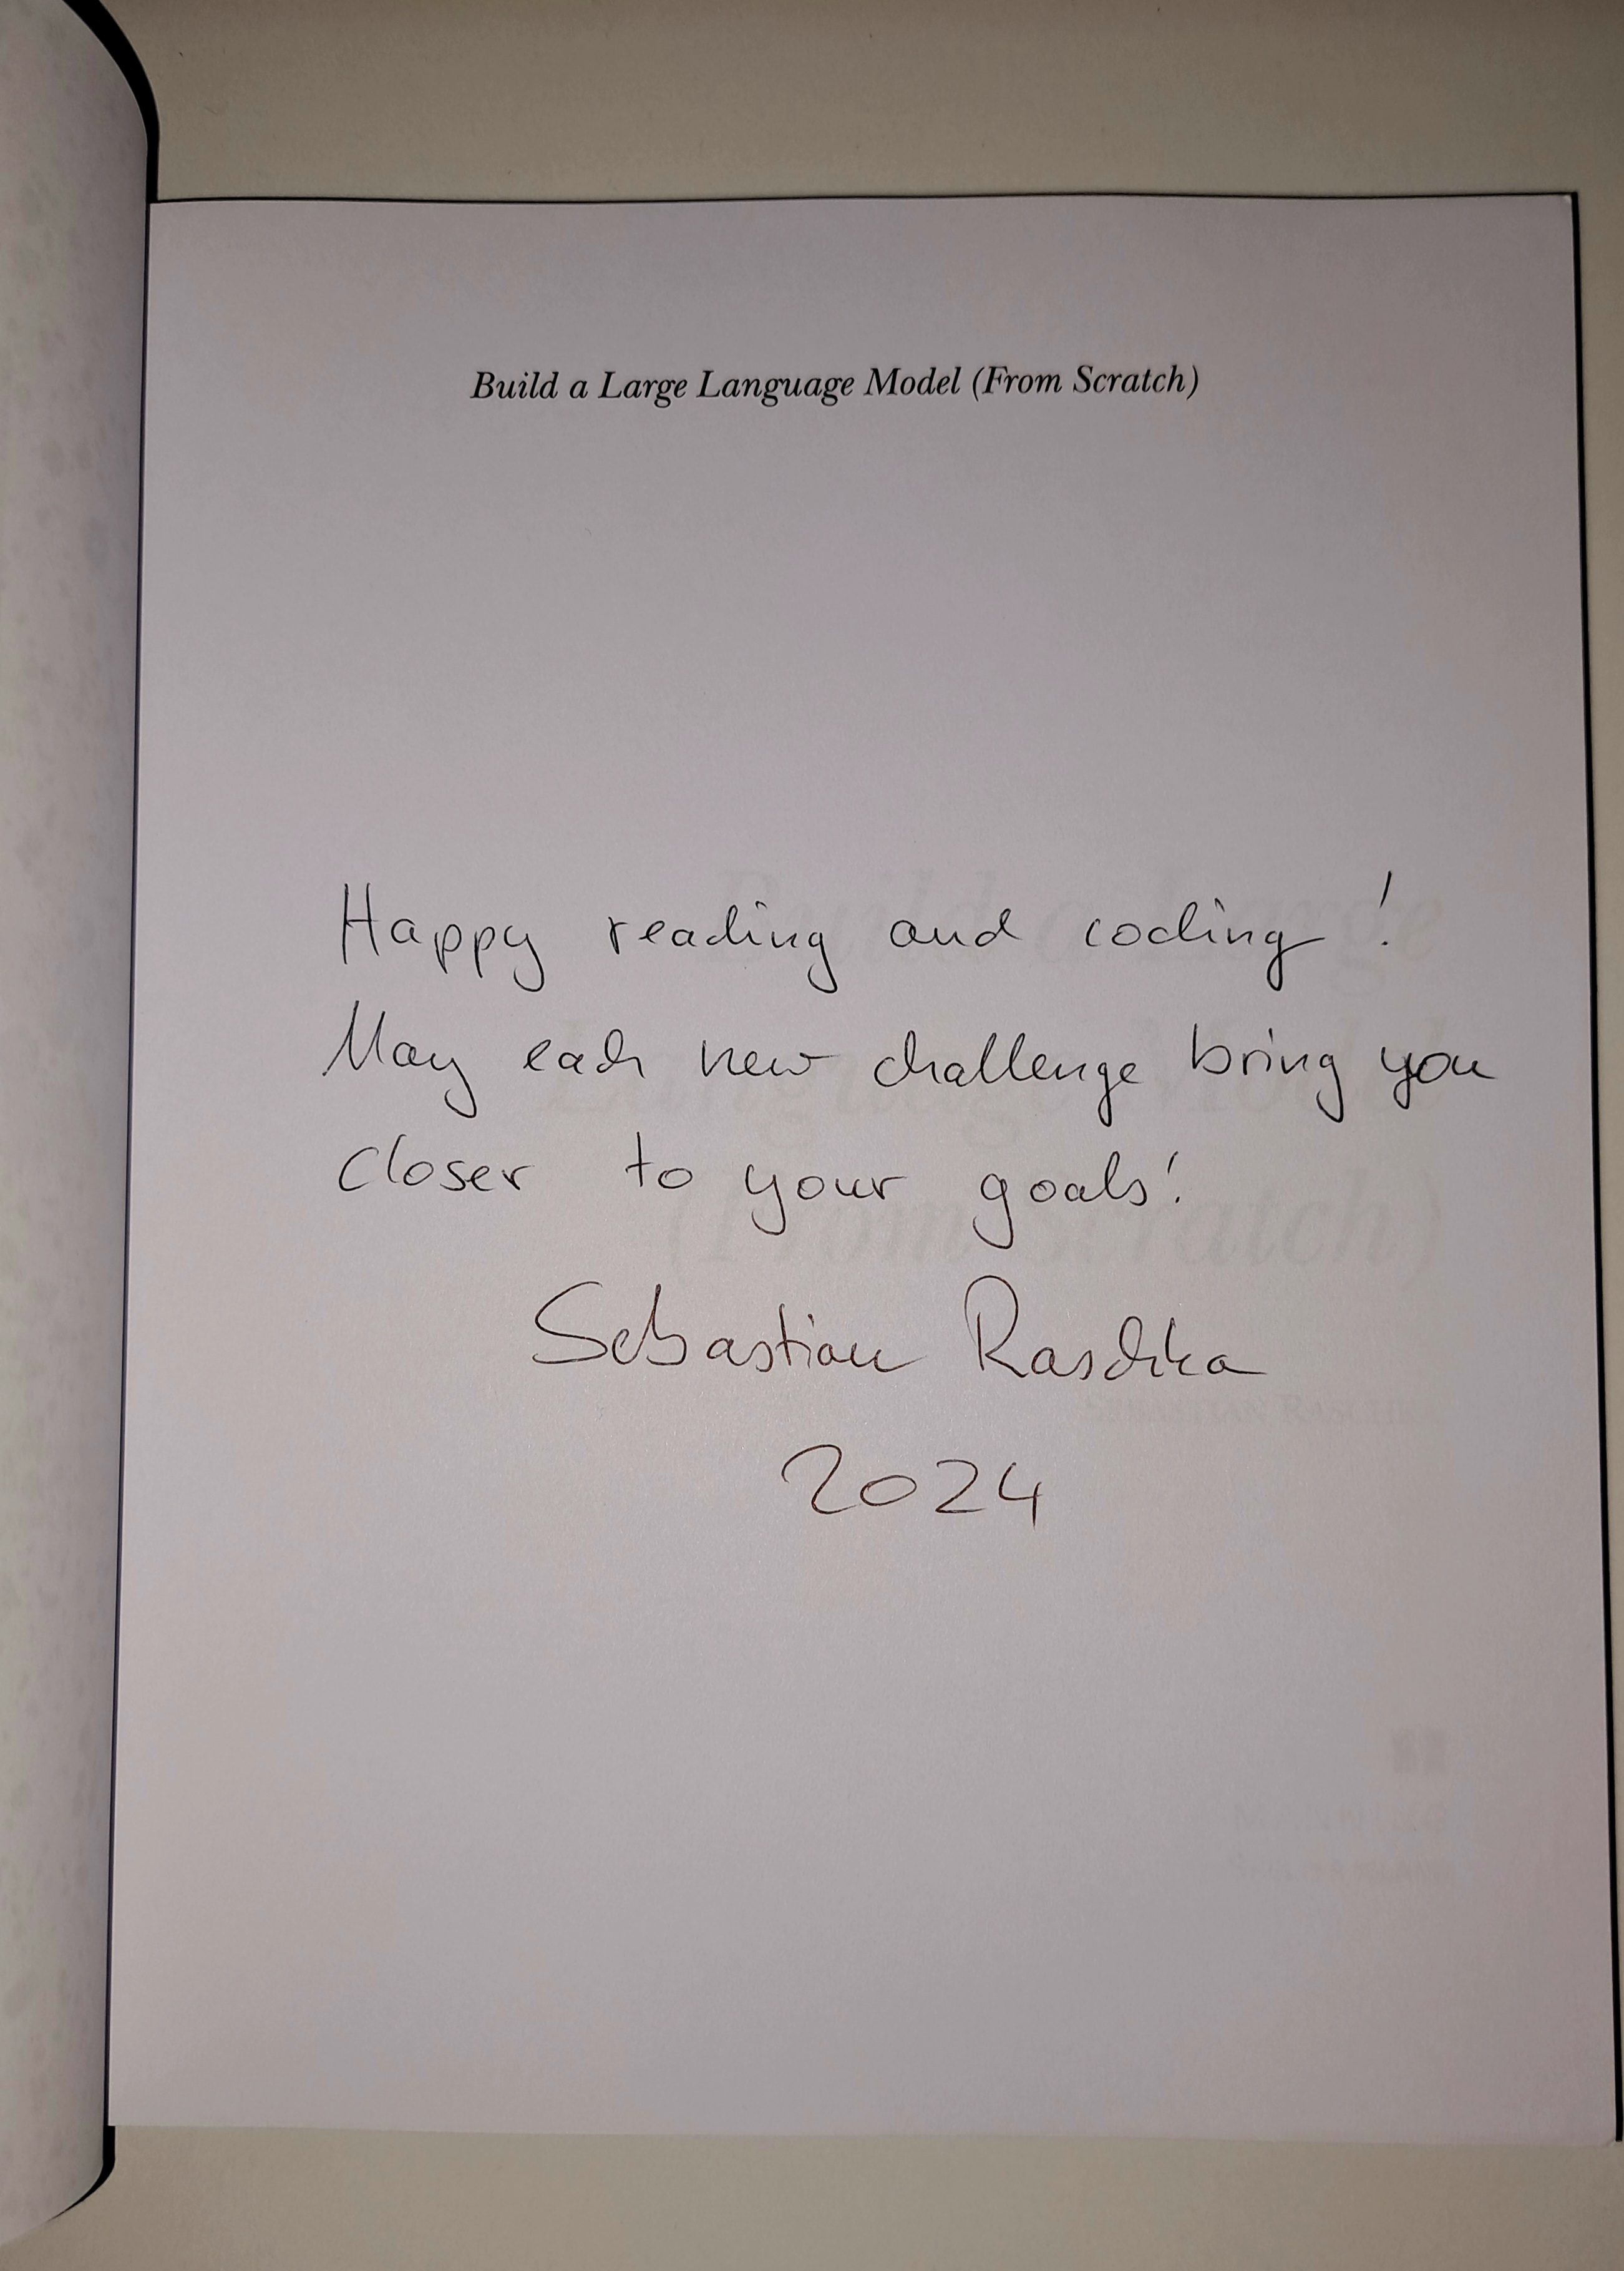 Build a Large Language Model (From Scratch)
Happy reading and coding!
May each new challenge bring you
closer to your goals!
Sebastian Raschka
2024